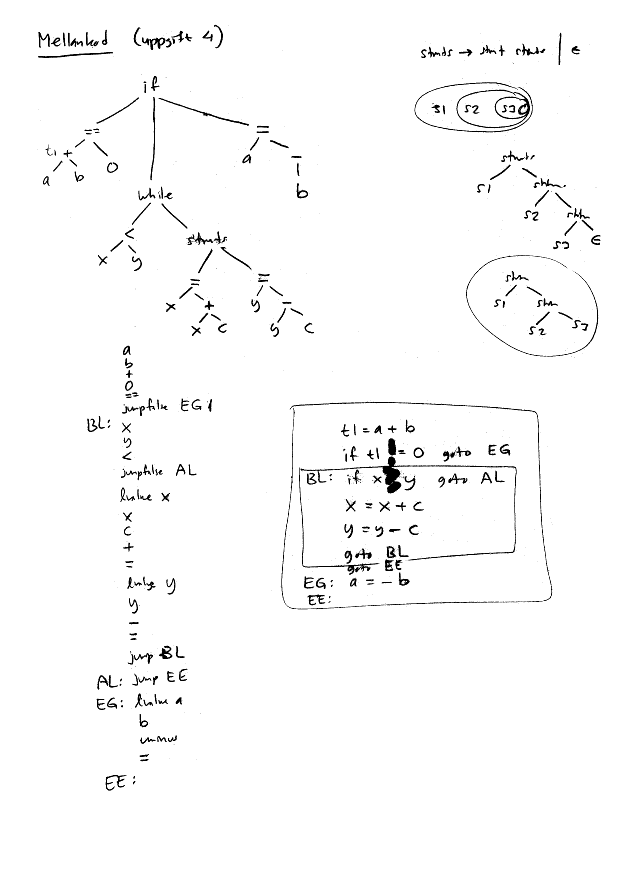 Mellankod (uppgift 4)
stmts → stmt stmts | ε
if
s1 s2 s3 ε
== =
t1 + 0 a -
a b b
stmts
s1 stmts
s2 stmts
s3 ε
while
< stmts
x y = =
x + y -
x c y c
stm
s1 stm
s2 s3
a
b
+
0
==
jumpfalse EG
BL: x
y
<
jumpfalse AL
lvalue x
x
c
+
=
lvalue y
y
-
=
jump BL
AL: jump EE
EG: lvalue a
b
=
EE:
t1 = a + b
if t1 != 0 goto EG
BL: if x y goto AL
x = x + c
y = y - c
goto BL
goto EE
EG: a = - b
EE: